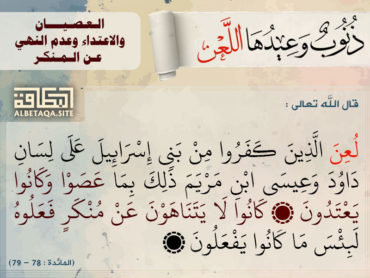 ذُنُوبٌ وَعِيدُهَا اللَّعْن
العصيان
والاعتداء وعدم النهي
عن المنكر
البطاقة
ALBETAQA.SITE
قال الله تعالى :
لُعِنَ الَّذِينَ كَفَرُوا مِنْ بَنِي إِسْرَائِيلَ عَلَى لِسَانِ
دَاوُدَ وَعِيسَى ابْنِ مَرْيَمَ ذَلِكَ بِمَا عَصَوْا وَكَانُوا
يَعْتَدُونَ كَانُوا لَا يَتَنَاهَوْنَ عَنْ مُنْكَرٍ فَعَلُوهُ
لَبِئْسَ مَا كَانُوا يَفْعَلُونَ
(المائدة : 78 - 79)